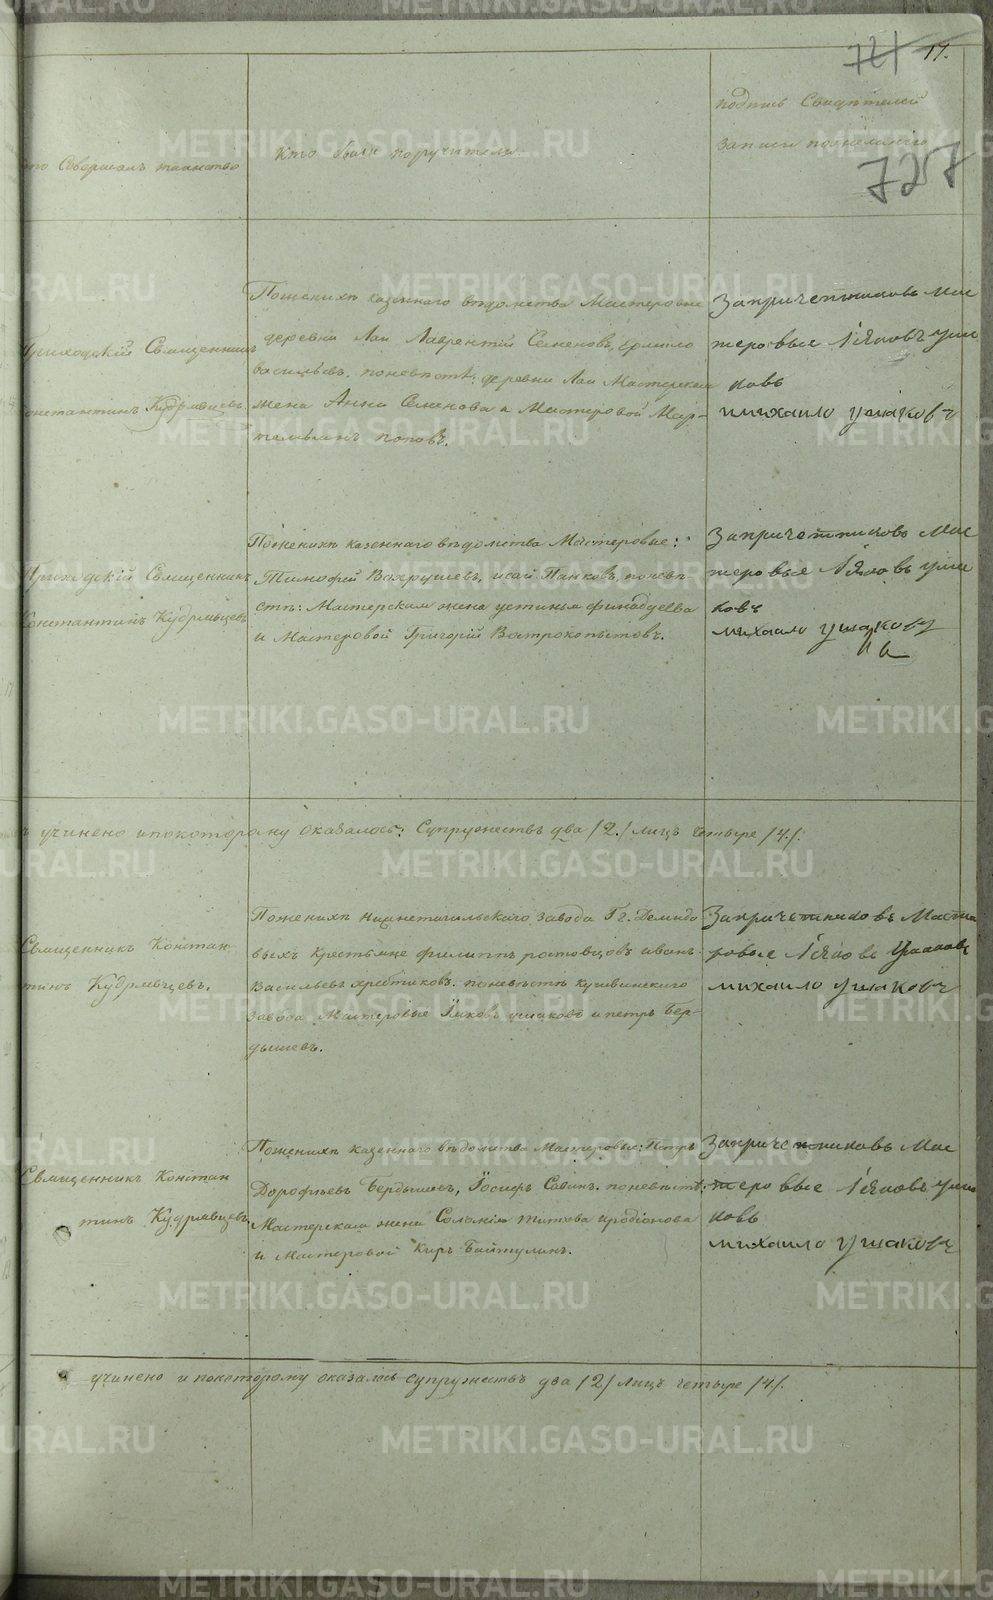 721 17.
727
то Совершалъ таинство
Кто были поручители
подпись Свидѣтелей
записи пожеланію
Приходскій Священникъ
Константинъ Кудрявцевъ
Поженихѣ казеннаго вѣдомства Мастеровые
деревни Лаи Лаврентій Семеновъ, Ермило
васильевъ, поневѣстѣ: деревни Лаи Мастерская
жена Анна Семенова и Мастеровой Мар-
темьянъ поповъ.
Запричетниковъ мас
теровые Іяковъ уша
ковъ
имихаило ушаковъ
Приходскій Священникъ
Константинъ Кудрявцевъ
Поженихѣ казеннаго вѣдомства Мастеровые:
Тимофей Вахрушевъ, исай Панковъ, поневѣ-
стѣ: Мастерская жена устинья
и Мастеровой Григорій Вострокопытовъ.
Запричетниковъ Мас
теровые Іяковъ уша
ковъ
михаило ушаковъ
учинено ипокоторому оказалось: Супружествъ два /2./ лицъ четыре /4./.
Священникъ Констан
тинъ Кудрявцевъ.
Поженихѣ нижнетагильскаго завода Гг. Демидо
выхъ крестьяне филиппъ ростовцовъ иванъ
васильевъ хребтиковъ. поневѣстѣ кушвинскаго
завода Мастеровые Іяковъ ушаковъ ипетръ Бер-
дышевъ.
Запричетниковъ Масте
ровые Іяковъ Ушаковъ
михаило ушаковъ
Священникъ Констан
тинъ Кудрявцевъ.
Поженихѣ казеннаго вѣдомства Мастеровые: Петръ
Дорофѣевъ Бердышевъ, Іосифъ Савинъ. поневѣстѣ:
Мастерская жена Соломія титова иродіонова
и Мастеровой Киръ Байтулинъ.
Запричетниковъ Мас
теровые Іяковъ уша
ковъ
михаило ушаковъ
учинено и покоторому оказалось супружествъ два /2/ лицъ четыре /4/.